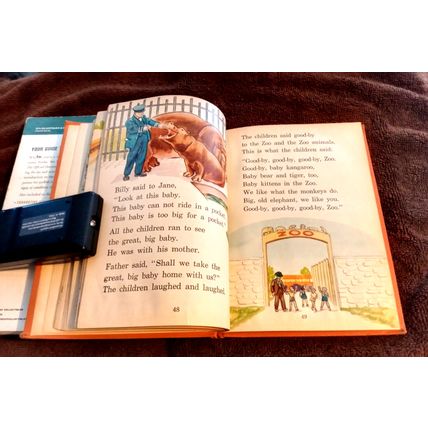 YOUR GUIDE
Billy said to Jane,
"Look at this baby.
This baby can not ride in a pocket.
This baby is too big for a pocket.
All the children ran to see
the great, big baby.
He was with his mother.
Father said, "Shall we take the
great, big baby home with us?"
The children laughed and laughed.
48
The children said good-by
to the Zoo and the Zoo animals.
This is what the children said.
"Good-by, good-by, good-by, Zoo.
Good-by, baby kangaroo,
Baby bear and tiger, too,
Baby kittens in the Zoo.
We like what the monkeys do.
Big, old elephant, we like you.
Good-by, good-by, good-by, Zoo."
ZOO
49